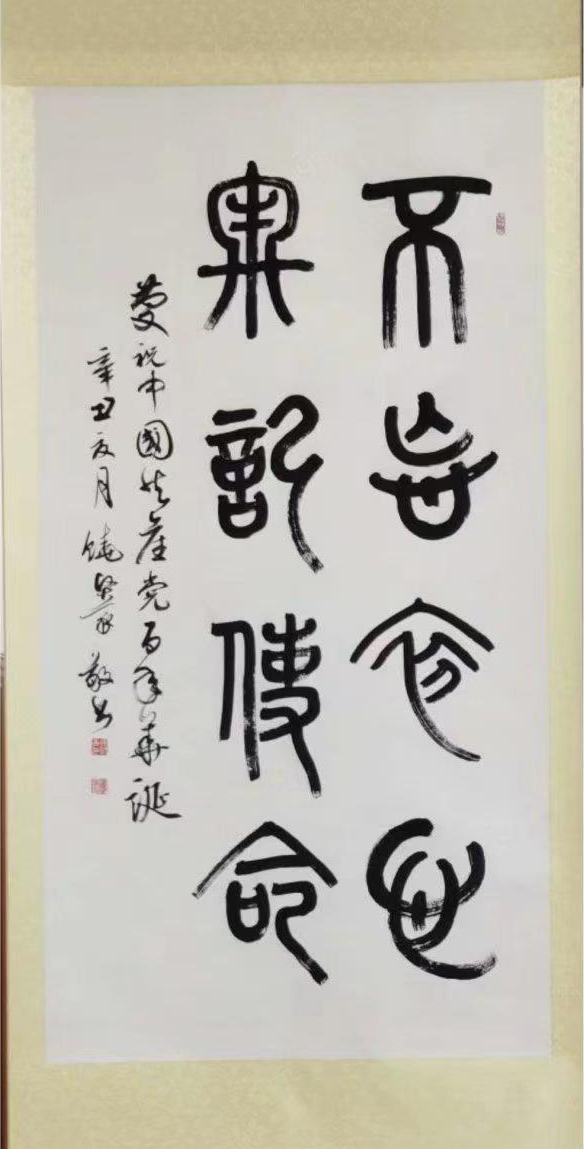 不忘初心
牢記使命
慶祝中國共產党百年華誕
辛丑夏月 饒賢家敬书